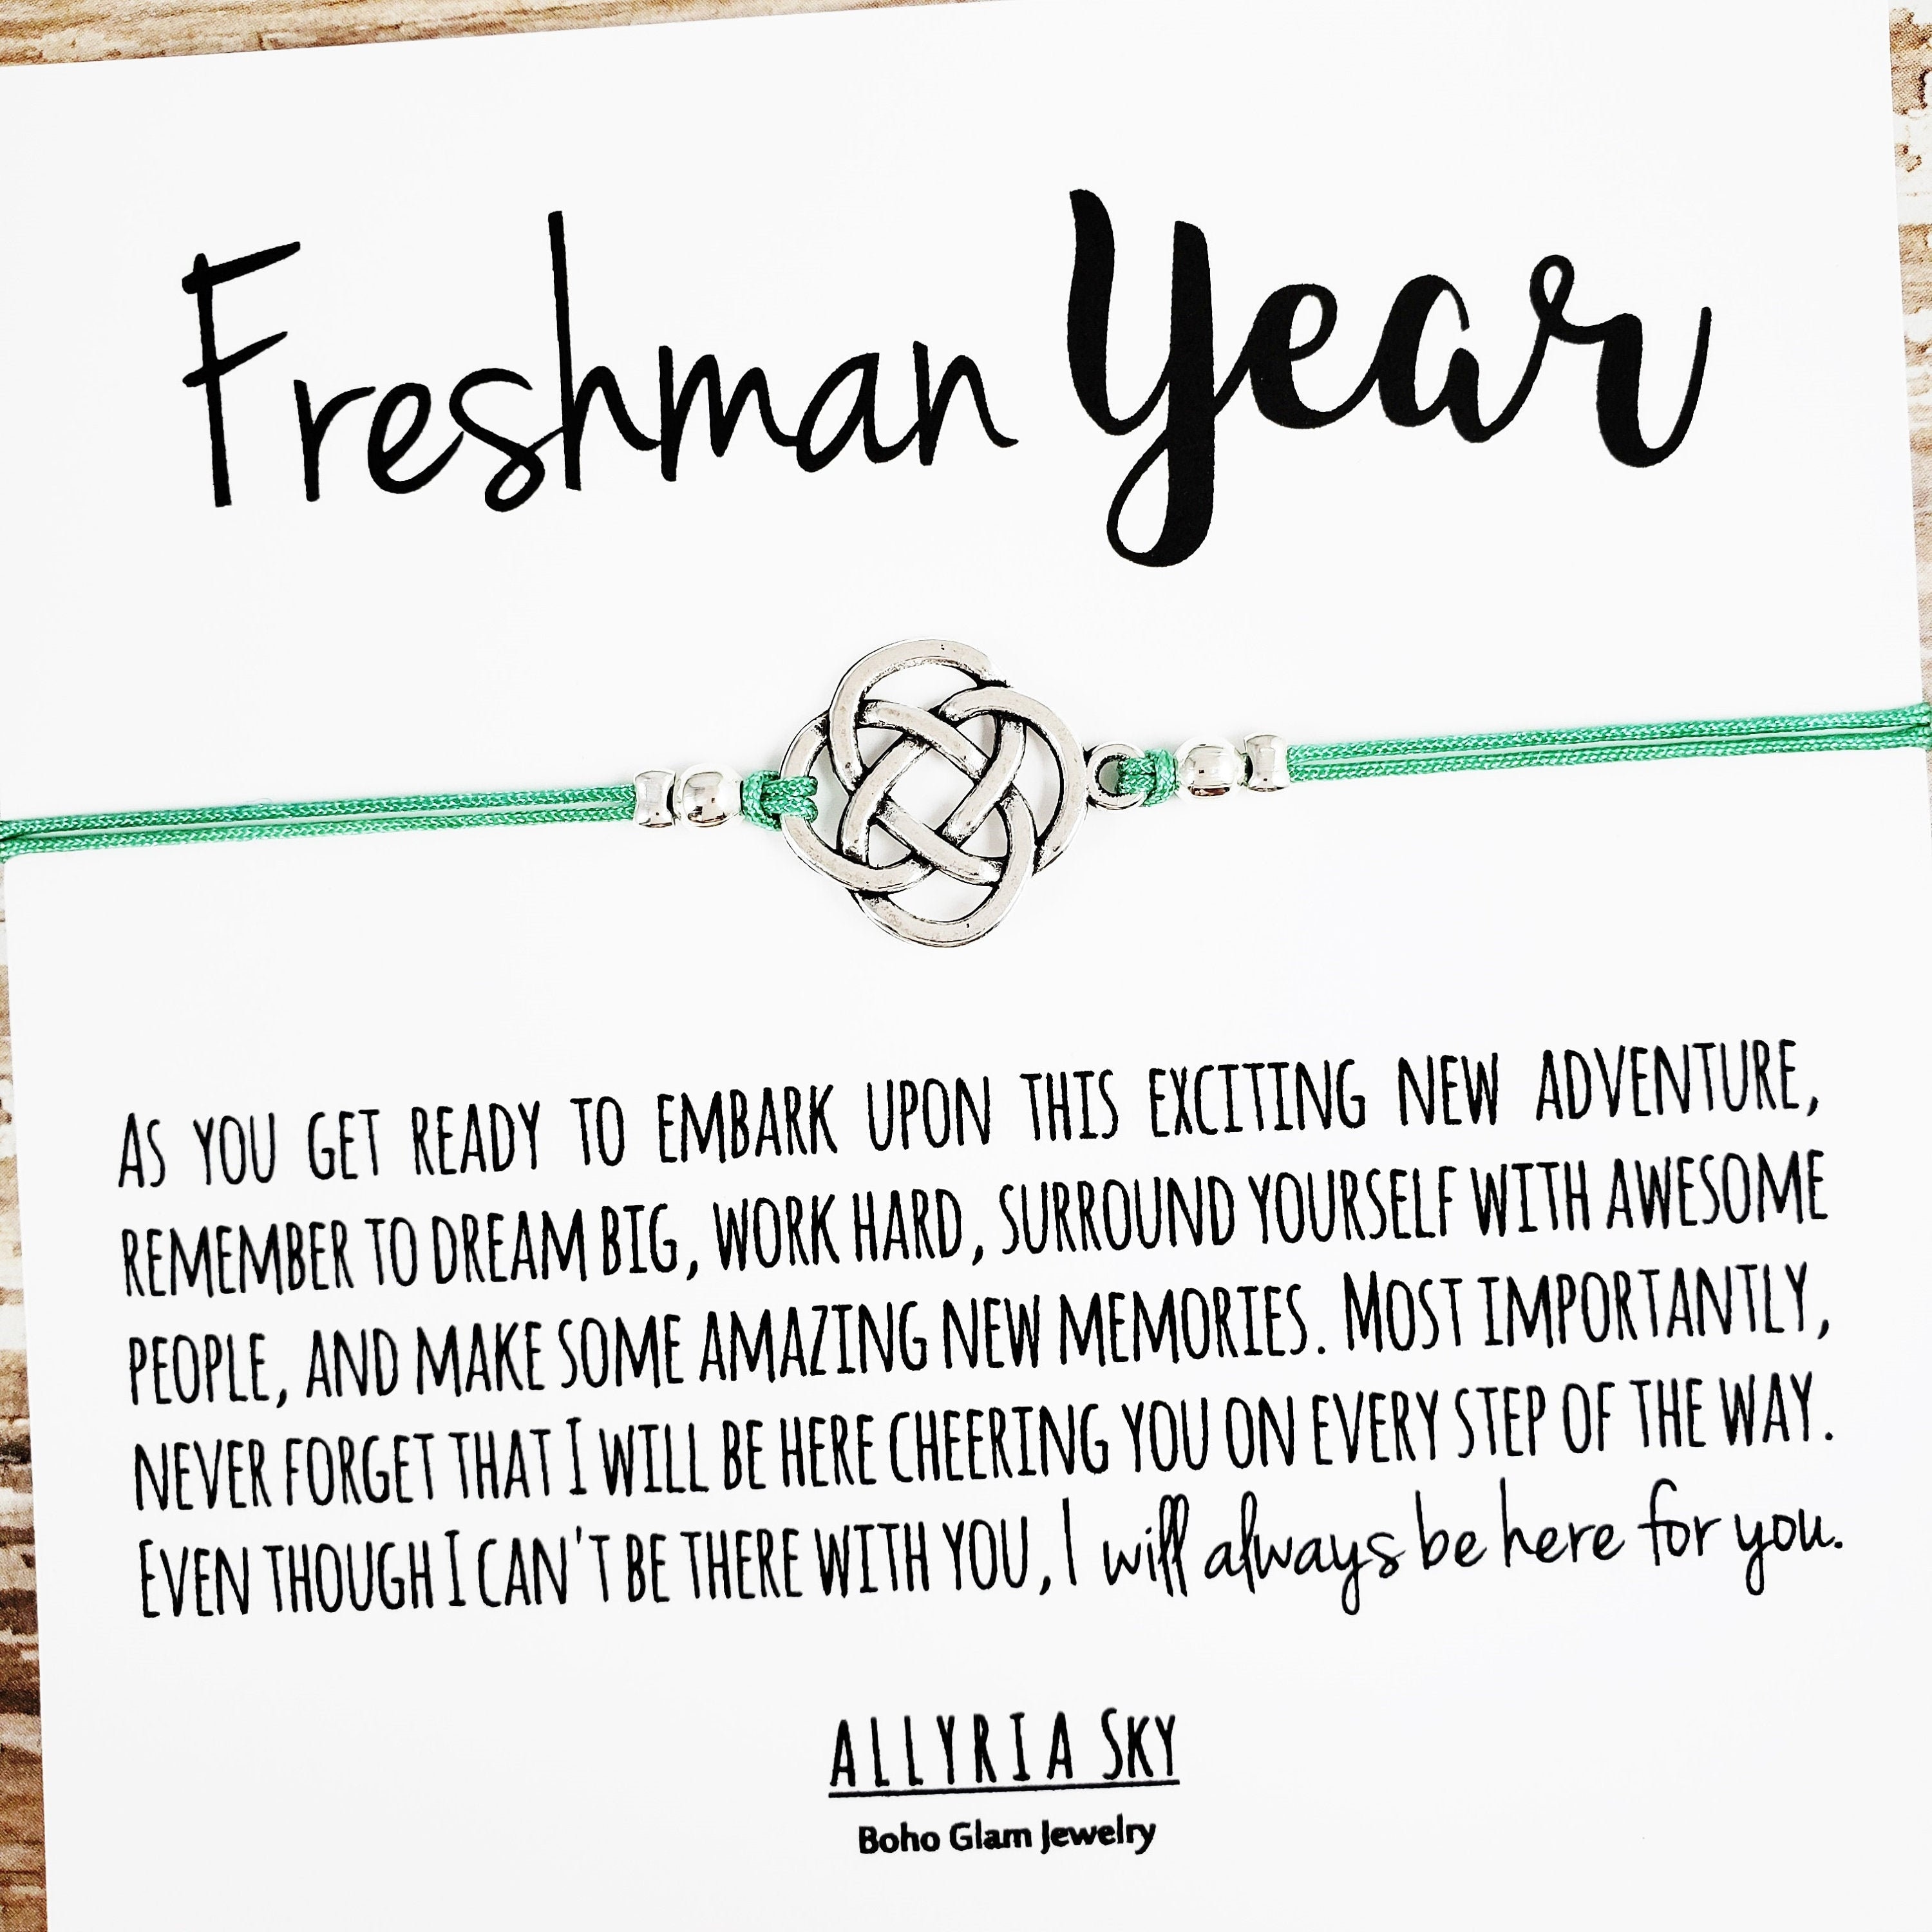 Freshman Year
As you get ready to embark upon this exciting new adventure,
remember to dream big, work hard, surround yourself with awesome
people, and make some amazing new memories. Most importantly,
never forget that I will be here cheering you on every step of the way.
Even though I can't be there with you, I will always be here for you.
ALLYRIA SKY
Boho Glam Jewelry